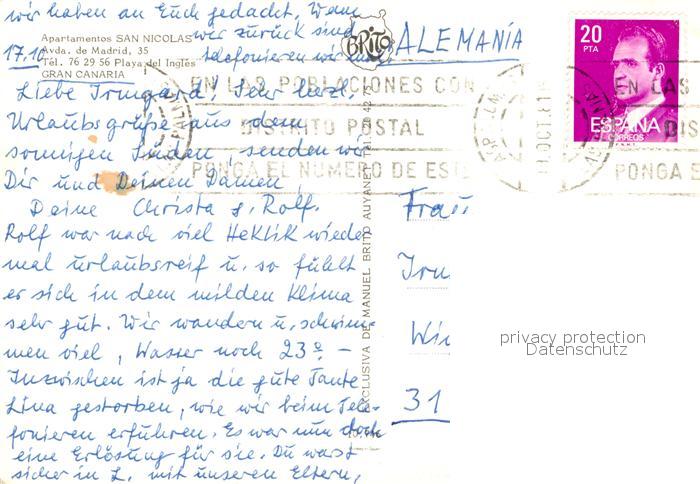 wir haben an Euch gedacht. Wenn
wir zurück sind
telefonieren wir
Apartamentos SAN NICOLAS
Avda. de Madrid, 35
Tél. 76 29 56 Playa del Inglés
GRAN CANARIA
17.10
BRITO
ALEMANÍA
20
PTA
ESPAÑA
CORREOS
EN LAS POBLACIONES CON
DISTRITO POSTAL
PONGA EL NUMERO DE ESTE
EN LAS
DIS
PONGA E
OCT.81
Liebe Irmgard, sehr herzl.
Urlaubsgrüße aus dem
sonnigen Süden, senden wir
Dir und Deinen Damen
Deine Christa u. Rolf.
Rolf war nach viel Hektik wieder
mal urlaubsreif u. so fühlt
er sich in dem milden Klima
sehr gut. Wir wandern u. schwim-
men viel, Wasser noch 23º. —
Inzwischen ist ja die gute Tante
Lina gestorben, wie wir beim Tele-
fonieren erfuhren. Es war nun doch
eine Erlösung für sie. Du warst
sicher in L. mit unseren Eltern,
EXCLUSIVA DE MANUEL BRITO AUYANET
Frau
31
privacy protection
Datenschutz